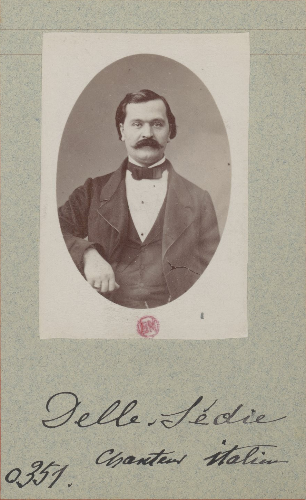 Delle-Sédie
Chanteur italien
0351.